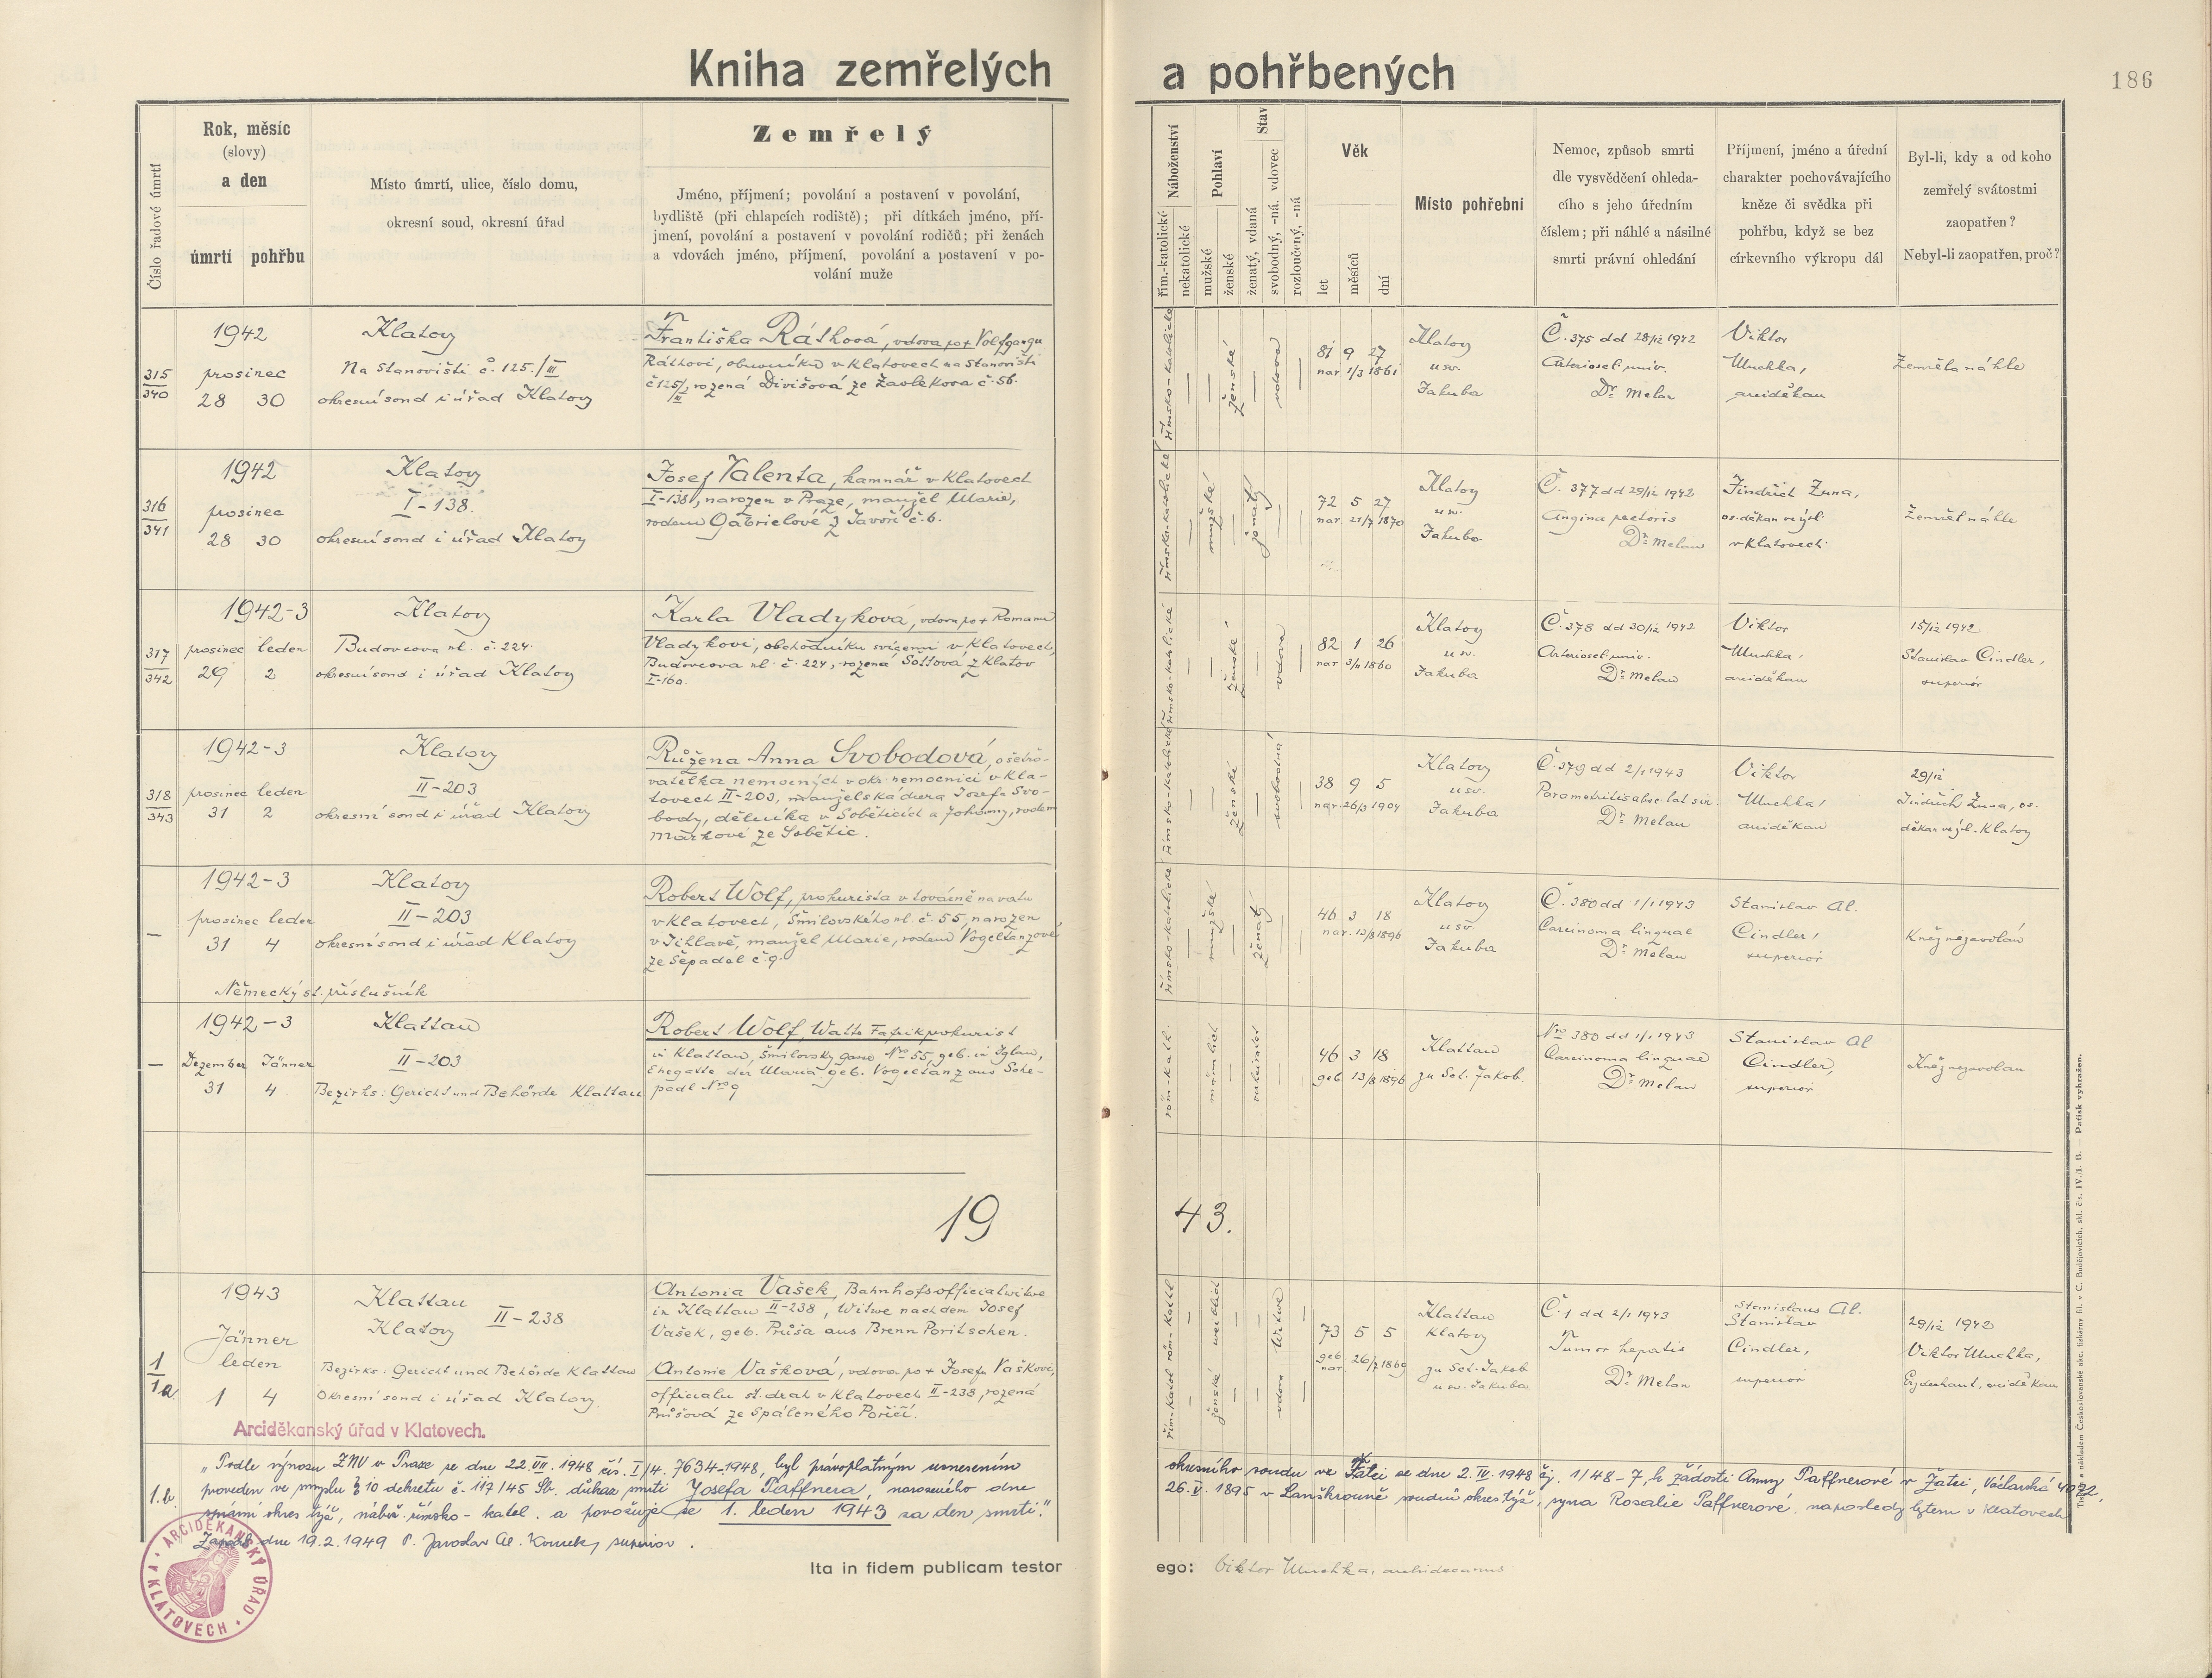 Kniha zemřelých a pohřbených
186
Číslo řadové úmrtí
Rok, měsíc
(slovy)
a den
úmrtí pohřbu
Místo úmrtí, ulice, číslo domu,
okresní soud, okresní úřad
Zemřelý
Jméno, příjmení; povolání a postavení v povolání,
bydliště (při chlapcích rodiště); při dítkách jméno, pří-
jmení, povolání a postavení v povolání rodičů; při ženách
a vdovách jméno, příjmení, povolání a postavení v po-
volání muže
Náboženství
řím.-katolické
nekatolické
Pohlaví
mužské
ženské
Stav
ženatý, vdaná
svobodný, -ná. vdovec
rozloučený, -ná
Věk
let
měsíců
dní
Místo pohřební
Nemoc, způsob smrti
dle vysvědčení ohleda-
cího s jeho úředním
číslem; při náhlé a násilné
smrti právní ohledání
Příjmení, jméno a úřední
charakter pochovávajícího
kněze či svědka při
pohřbu, když se bez
církevního výkropu dál
Byl-li, kdy a od koho
zemřelý svátostmi
zaopatřen?
Nebyl-li zaopatřen, proč?
315
340
1942
prosinec
28 30
Klatovy
Na Stanovišti č. 125./III
okresní soud i úřad Klatovy
Františka Ráthová, vdova po + Volfgangu
Ráthovi, obuvníku v Klatovech na Stanovišti
č 125/III, rozená Divišová ze Zavlekova č. 56.
římsko-katolické
ženské
vdova
81 9 27
nar 1/3 1861
Klatovy
u sv.
Jakuba
Č. 375 dd 28/12 1942
Arteriosel. univ.
Dr Melan
Viktor
Muchka,
arciděkan
Zemřela náhle
316
341
1942
prosinec
28 30
Klatovy
I-138.
okresní soud i úřad Klatovy
Josef Valenta, kamnář v Klatovech
I-138, narozen v Praze, manžel Marie,
rodem Gabrielové z Javoří č. 6.
římsko-katolické
mužské
ženatý
72 5 27
nar. 21/7 1870
Klatovy
u sv.
Jakuba
Č. 377 dd 29/12 1942
Angina pectoris
Dr Melan
Jindřich Žuna,
os. děkan ve výsl.
v Klatovech.
Zemřel náhle
317
342
1942-3
prosinec leden
29 2
Klatovy
Budovcova ul. č. 224.
okresní soud i úřad Klatovy
Karla Vladyková, vdova po + Romanu
Vladykovi, obchodníku svícemi v Klatovech,
Budovcova ul. č. 224, rozená Sottová z Klatov
I-160.
římsko-katolické
ženské
vdova
82 1 26
nar 3/11 1860
Klatovy
u sv.
Jakuba
Č. 378 dd 30/12 1942
Arteriosel. univ.
Dr Melan
Viktor
Muchka,
arciděkan
15/12 1942
Stanislav Cindler,
superior
318
343
1942-3
prosinec leden
31 2
Klatovy
II-203
okresní soud i úřad Klatovy
Růžena Anna Svobodová, ošetřo-
vatelka nemocných v okr. nemocnici v Kla-
tovech II-203, manželská dcera Josefa Svo-
body, dělníka v Soběticích a Johanny, rodem
Márkové ze Sobětic.
římsko-katolické
ženské
svobodná
38 9 5
nar. 26/3 1904
Klatovy
u sv.
Jakuba
Č. 379 dd 2/1 1943
Parametritis absc. lat. sin.
Dr Melan
Viktor
Muchka,
arciděkan
29/12
Jindřich Žuna, os.
děkan ve výsl. Klatovy
1942-3
prosinec leden
31 4
Klatovy
II-203
okresní soud i úřad Klatovy
Německý st. příslušník
Robert Wolf, prokurista v továrně na vatu
v Klatovech, Šmilovského ul. č. 55, narozen
v Jihlavě, manžel Marie, rodem Vogeltanzové
ze Šepadel č. 9.
římsko-katolické
mužské
ženatý
46 3 18
nar. 13/8 1896
Klatovy
u sv.
Jakuba
Č. 380 dd 1/1 1943
Carcinoma linguae
Dr Melan
Stanislav Al.
Cindler,
superior
Kněz nezavolán
1942-3
Dezember Jänner
31 4
Klattau
II-203
Bezirks: Gericht und Behörde Klattau
Robert Wolf, Watte Fabrikprokurist
in Klattau, Šmilovsky gasse Nro 55, geb. in Iglau,
Ehegatte der Maria geb. Vogeltanz aus Sche-
padl Nro 9
röm-kath.
männlich
verheiratet
46 3 18
geb. 13/8 1896
Klattau
zu Sct. Jakob.
Nro 380 dd 1/1 1943
Carcinoma linguae
Dr Melan
Stanislav Al
Cindler,
superior
Kněz nezavolán
19 43.
1
1a
1943
Jänner
leden
1 4
Klattau
Klatovy II-238
Bezirks: Gericht und Behörde Klattau
Okresní soud i úřad Klatovy.
Antonia Vašek, Bahnhofsofficialwitwe
in Klattau II-238, Witwe nach dem Josef
Vašek, geb. Průša aus Brenn Poritschen.
Antonie Vašková, vdova po + Josefu Vaškovi,
officialu st. drah v Klatovech II-238, rozená
Průšová ze Spáleného Poříčí.
řím-katol röm-kathl.
ženské weiblich
vdova Witwe
73 5 5
geb
nar 26/7 1869
Klattau
Klatovy
zu Sct. Jakob
u sv. Jakuba
Č. 1 dd 2/1 1943
Tumor hepatis
Dr Melan
Stanislaus Al.
Stanislav
Cindler,
superior
29/12 1942
Viktor Muchka,
Erzdechant, arciděkan
Arciděkanský úřad v Klatovech.
1.b.
„Podle výnosu ZNV v Praze ze dne 22.VII.1948 čís. I/4. 7634-1948, byl právoplatným usnesením okresního soudu ve Žatci ze dne 2.IV.1948 čj. 1/48-7, k žádosti Anny Paffnerové v Žatci, Václavská 4022,
proveden ve smyslu § 10 dekretu č. 117/45 Sb. důkaz smrti Josefa Paffnera, narozeného dne 26.V.1895 v Lanškrouně soudní okres týž, syna Rosalie Paffnerové. naposledy bytem v Klatovech
správní okres týž, nábož. římsko-katol. a považuje se 1. leden 1943 za den smrti."
Zapsal dne 19.2.1949 P. Jaroslav Al. superior.
ARCIDĚKANSKÝ ÚŘAD V KLATOVECH
Ita in fidem publicam testor ego: Viktor Muchka, archidecanus
Tisk a nákladem Českoslovanské akc. tiskárny fil. v Č. Budějovicích. skl. čís. IV./I. B. — Patisk vyhražen.